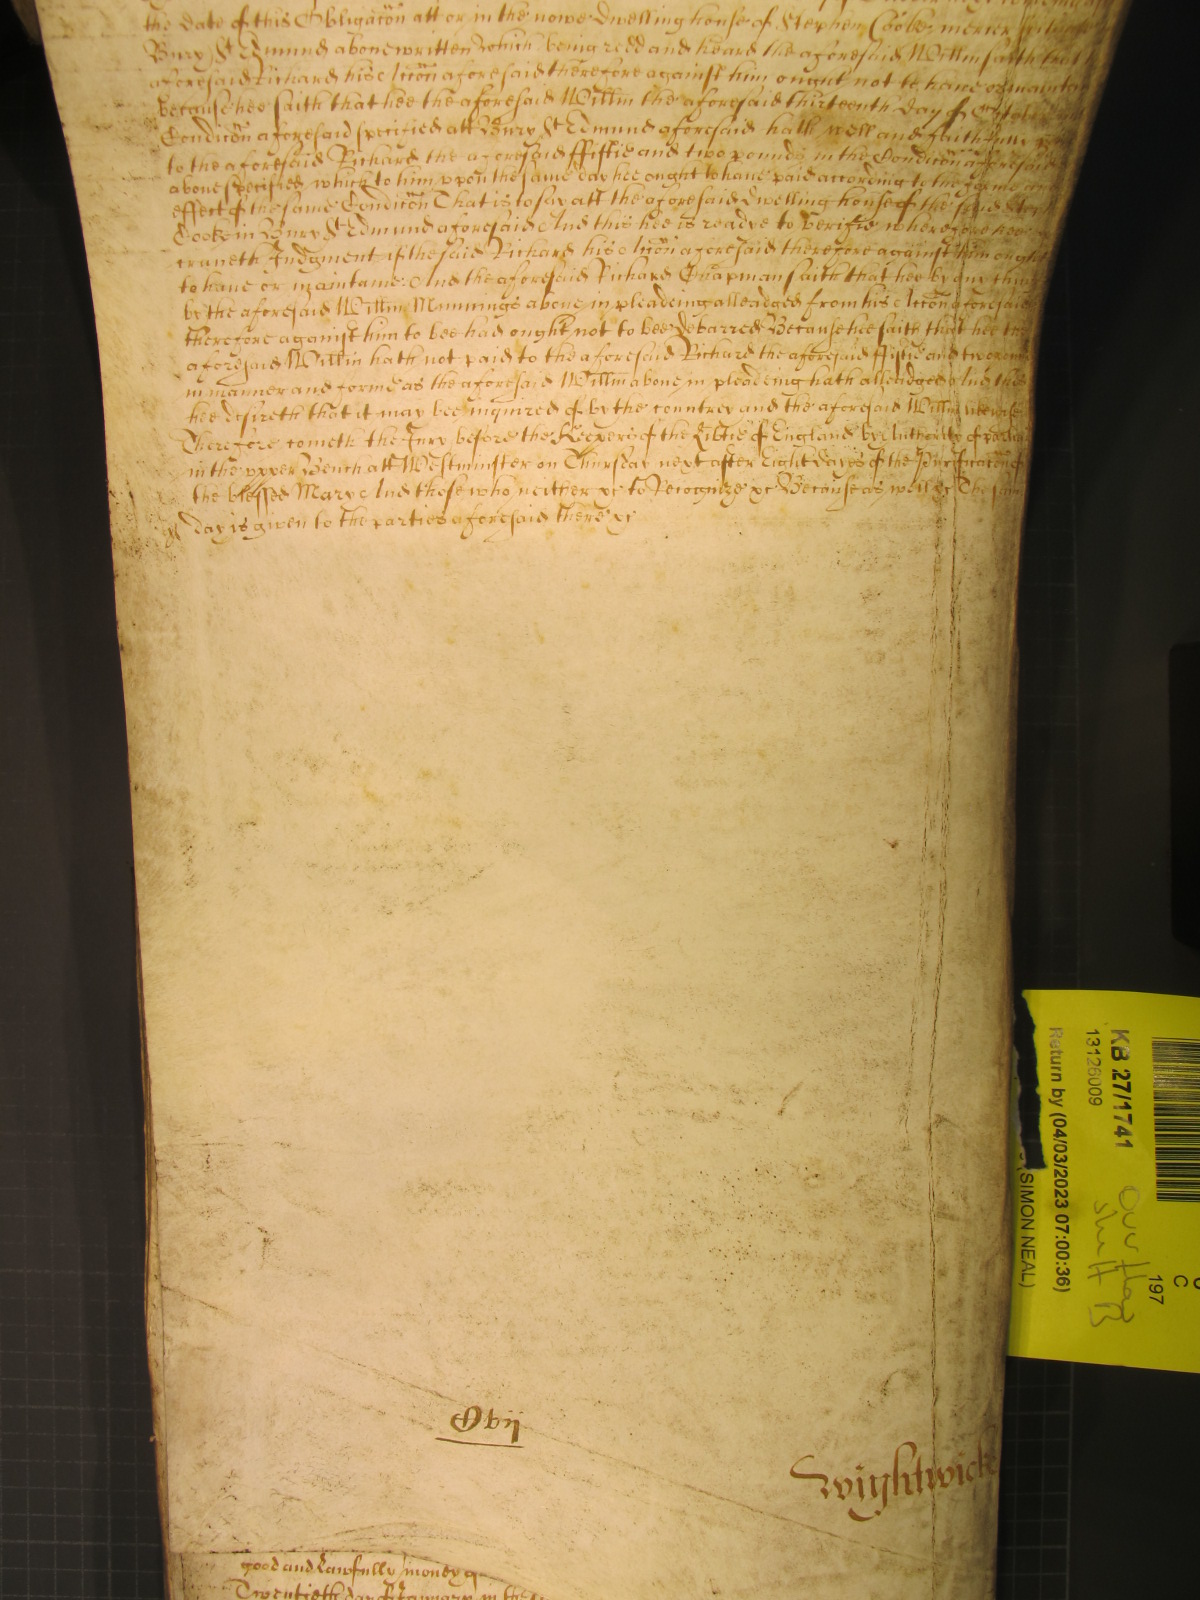 the date of this Obligacõn att or in the nowe dwelling house of Stephen Cooke mercer
Bury St Edmund abovewritten Which being redd and heard the aforesaid Willm saith that
aforesaid Richard his Accõn aforesaid therefore against him ought not to have or maintaine
because hee saith that hee the aforesaid Willm the aforesaid thirteenth day of October
Condicõn aforesaid specified att Bury St Edmund aforesaid hath well and faithfully
to the aforesaid Richard the aforesaid ffiftie and two pounds in the Condicõn aforesaid
above specified which to him vpon the same day hee ought to have paid according to the forme and
effect of the same Condicõn That is to say att the aforesaid dwelling house of the said
Cooke in Bury St Edmund aforesaid And this hee is readye to verifie wherefore hee
craveth Judgment if the said Richard his Accõn aforesaid therefore against him ought
to have or maintaine And the aforesaid Richard Chapman saith that hee by any thing
by the aforesaid Willm Mannings above in pleadeing alleadged from his Accõn aforesaid
therefore against him to bee had ought not to bee debarred Because hee saith that hee the
aforesaid Willm hath not paid to the aforesaid Richard the aforesaid ffiftie and two
in manner and forme as the aforesaid Willm above in pleadeing hath alleadged And this
hee desireth that it may bee inquired of by the countrey and the aforesaid Willm likewise
Therefore cometh the Jury before the Keepers of the Libtie of England by Authority of
in the vpper Bench att Westminster on Thursday next after Eight dayes of the Purificacõn of
the blessed Mary And those who neither xc to Recognize xc Because as well xc The same
day is given to the parties aforesaid there xc
Wightwicke
good and lawfully money
Twentieth day of January in the
KB 27/1741
13126009
Return by (04/03/2023 07:00:36)
(SIMON NEAL)
197
C